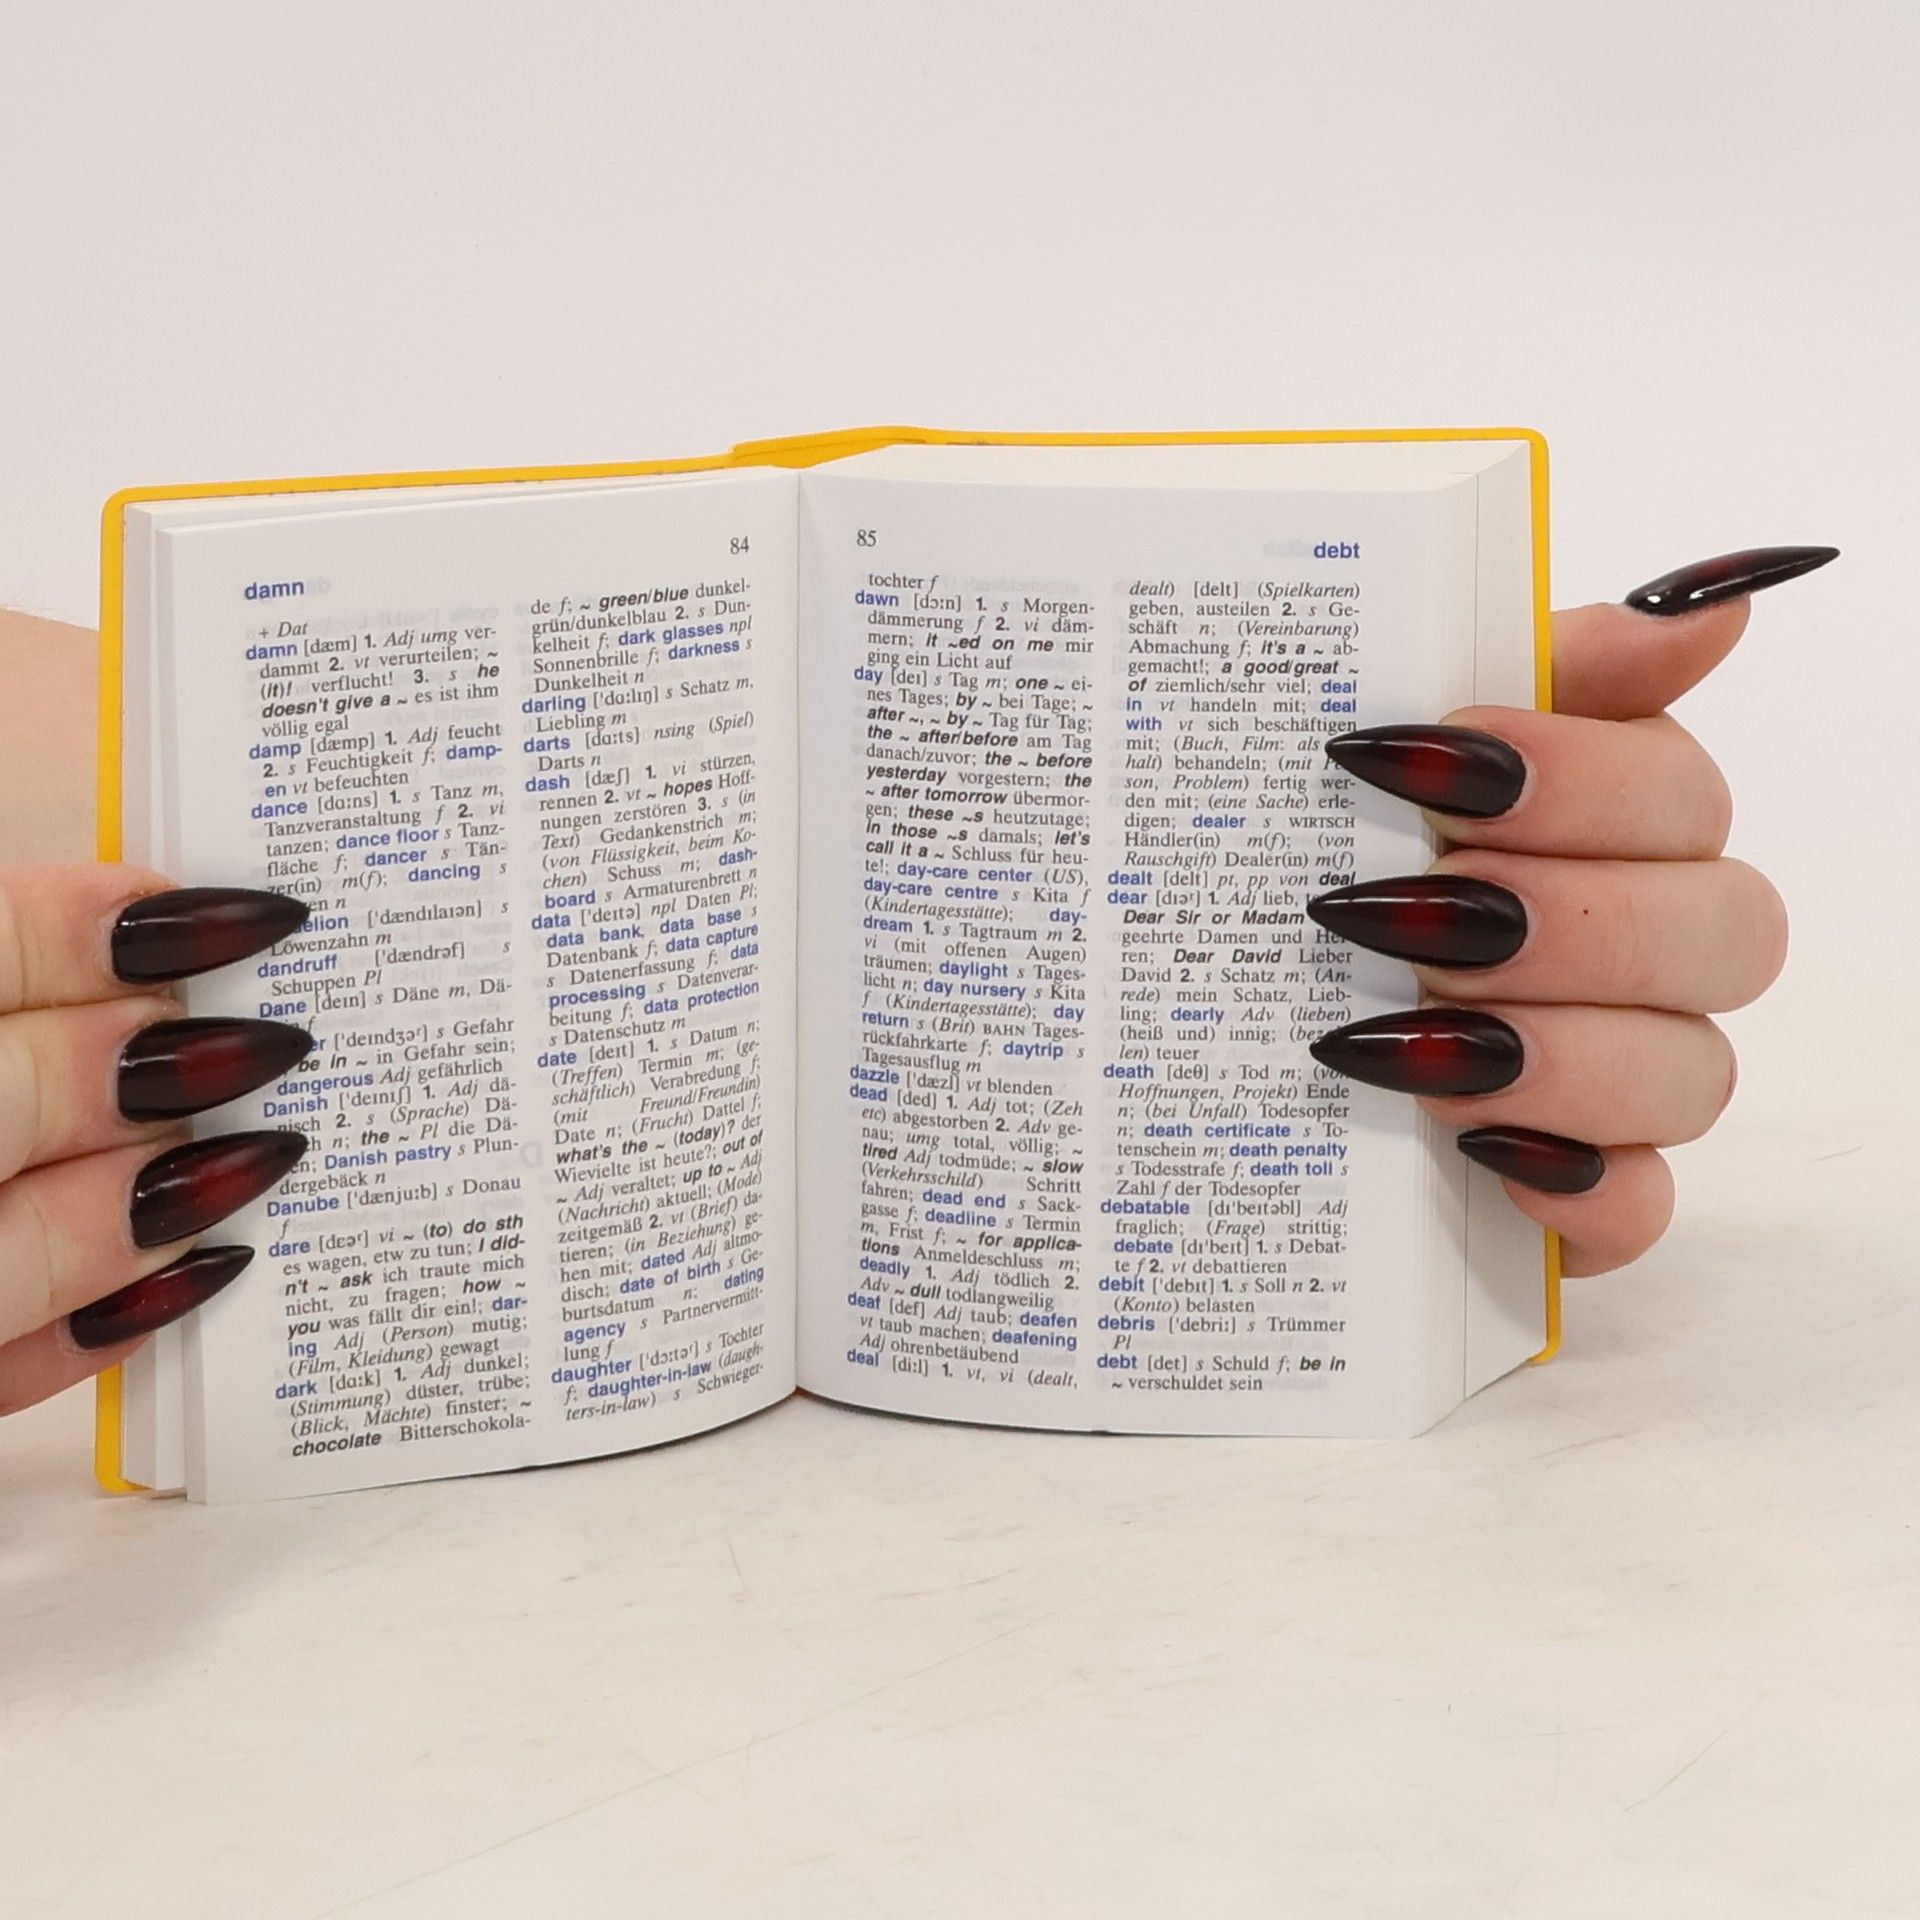 84
damn
+ Dat
damn [dæm] 1. Adj umg ver-
dammt 2. vt verurteilen; ~
(it)! verflucht! 3. s he
doesn't give a ~ es ist ihm
völlig egal
damp [dæmp] 1. Adj feucht
2. s Feuchtigkeit f; damp-
en vt befeuchten
dance [dɑːns] 1. s Tanz m,
Tanzveranstaltung f 2. vi
tanzen; dance floor s Tanz-
fläche f; dancer s Tän-
zer(in) m(f); dancing s
n
['dændɪlaɪən] s
Löwenzahn m
dandruff ['dændrəf] s
Schuppen Pl
Dane [deɪn] s Däne m, Dä-
f
['deɪndʒəʳ] s Gefahr
be in ~ in Gefahr sein;
dangerous Adj gefährlich
Danish ['deɪnɪʃ] 1. Adj dä-
nisch 2. s (Sprache) Dä-
n; the ~ Pl die Dä-
Danish pastry s Plun-
dergebäck n
Danube ['dænjuːb] s Donau
f
dare [dɛəʳ] vi ~ (to) do sth
es wagen, etw zu tun; I did-
n't ~ ask ich traute mich
nicht, zu fragen; how ~
you was fällt dir ein!; dar-
ing Adj (Person) mutig;
(Film, Kleidung) gewagt
dark [dɑːk] 1. Adj dunkel;
(Stimmung) düster, trübe;
(Blick, Mächte) finster; ~
chocolate Bitterschokola-
de f; ~ green/blue dunkel-
grün/dunkelblau 2. s Dun-
kelheit f; dark glasses npl
Sonnenbrille f; darkness s
Dunkelheit n
darling ['dɑːlɪŋ] s Schatz m,
Liebling m
darts [dɑːts] nsing (Spiel)
Darts n
dash [dæʃ] 1. vi stürzen,
rennen 2. vt ~ hopes Hoff-
nungen zerstören 3. s (in
Text) Gedankenstrich m;
(von Flüssigkeit, beim Ko-
chen) Schuss m; dash-
board s Armaturenbrett n
data ['deɪtə] npl Daten Pl;
data bank, data base s
Datenbank f; data capture
s Datenerfassung f; data
processing s Datenverar-
beitung f; data protection
s Datenschutz m
date [deɪt] 1. s Datum n;
(Treffen) Termin m; (ge-
schäftlich) Verabredung f;
(mit Freund/Freundin)
Date n; (Frucht) Dattel f;
what's the ~ (today)? der
Wievielte ist heute?; out of
~ Adj veraltet; up to ~ Adj
(Nachricht) aktuell; (Mode)
zeitgemäß 2. vt (Brief) da-
tieren; (in Beziehung) ge-
hen mit; dated Adj altmo-
disch; date of birth s Ge-
burtsdatum n; dating
agency s Partnervermitt-
lung f
daughter ['dɔːtəʳ] s Tochter
f; daughter-in-law (daugh-
ters-in-law) s Schwieger-
85
debt
tochter f
dawn [dɔːn] 1. s Morgen-
dämmerung f 2. vi däm-
mern; it ~ed on me mir
ging ein Licht auf
day [deɪ] s Tag m; one ~ ei-
nes Tages; by ~ bei Tage; ~
after ~, ~ by ~ Tag für Tag;
the ~ after/before am Tag
danach/zuvor; the ~ before
yesterday vorgestern; the
~ after tomorrow übermor-
gen; these ~s heutzutage;
in those ~s damals; let's
call it a ~ Schluss für heu-
te!; day-care center (US),
day-care centre s Kita f
(Kindertagesstätte); day-
dream 1. s Tagtraum m 2.
vi (mit offenen Augen)
träumen; daylight s Tages-
licht n; day nursery s Kita
f (Kindertagesstätte); day
return s (Brit) BAHN Tages-
rückfahrkarte f; daytrip s
Tagesausflug m
dazzle ['dæzl] vt blenden
dead [ded] 1. Adj tot; (Zeh
etc) abgestorben 2. Adv ge-
nau; umg total, völlig; ~
tired Adj todmüde; ~ slow
(Verkehrsschild) Schritt
fahren; dead end s Sack-
gasse f; deadline s Termin
m, Frist f; ~ for applica-
tions Anmeldeschluss m;
deadly 1. Adj tödlich 2.
Adv ~ dull todlangweilig
deaf [def] Adj taub; deafen
vt taub machen; deafening
Adj ohrenbetäubend
deal [diːl] 1. vt, vi (dealt,
dealt) [delt] (Spielkarten)
geben, austeilen 2. s Ge-
schäft n; (Vereinbarung)
Abmachung f; it's a ~ ab-
gemacht!; a good/great ~
of ziemlich/sehr viel; deal
in vt handeln mit; deal
with vt sich beschäftigen
mit; (Buch, Film: als
halt) behandeln; (mit
son, Problem) fertig wer-
den mit; (eine Sache) erle-
digen; dealer s WIRTSCH
Händler(in) m(f); (von
Rauschgift) Dealer(in) m(f)
dealt [delt] pt, pp von deal
dear [dɪəʳ] 1. Adj lieb,
Dear Sir or Madam
geehrte Damen und Her-
ren; Dear David Lieber
David 2. s Schatz m; (An-
rede) mein Schatz, Lieb-
ling; dearly Adv (lieben)
(heiß und) innig;
len) teuer
death [deθ] s Tod m; (von
Hoffnungen, Projekt) Ende
n; (bei Unfall) Todesopfer
n; death certificate s To-
tenschein m; death penalty
s Todesstrafe f; death toll s
Zahl f der Todesopfer
debatable [dɪ'beɪtəbl] Adj
fraglich; (Frage) strittig;
debate [dɪ'beɪt] 1. s Debat-
te f 2. vt debattieren
debit ['debɪt] 1. s Soll n 2. vt
(Konto) belasten
debris ['debriː] s Trümmer
Pl
debt [det] s Schuld f; be in
~ verschuldet sein